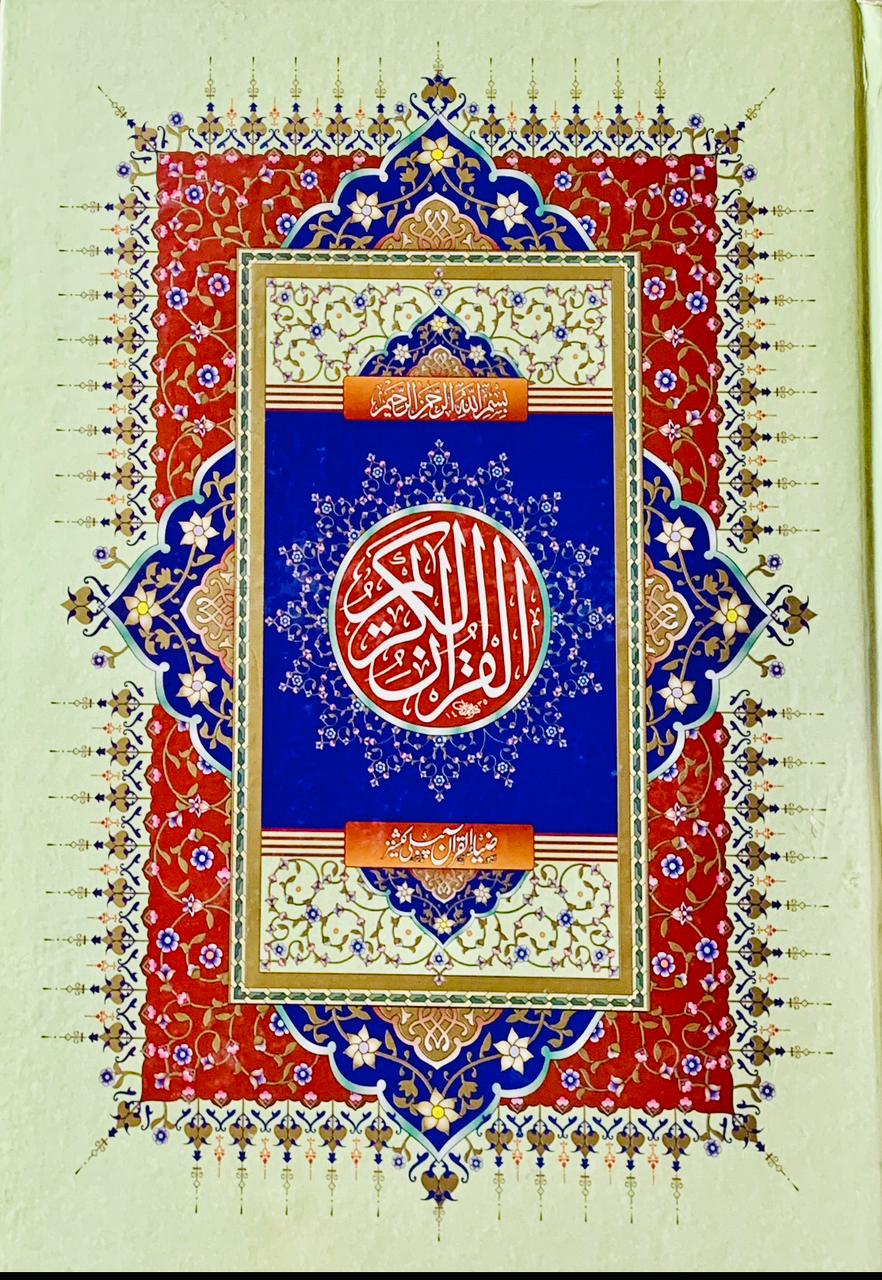 بِسْمِ اللهِ الرَّحْمٰنِ الرَّحِيْمِ
القرآن الكريم
ضیاء القرآن پبلی کیشنز